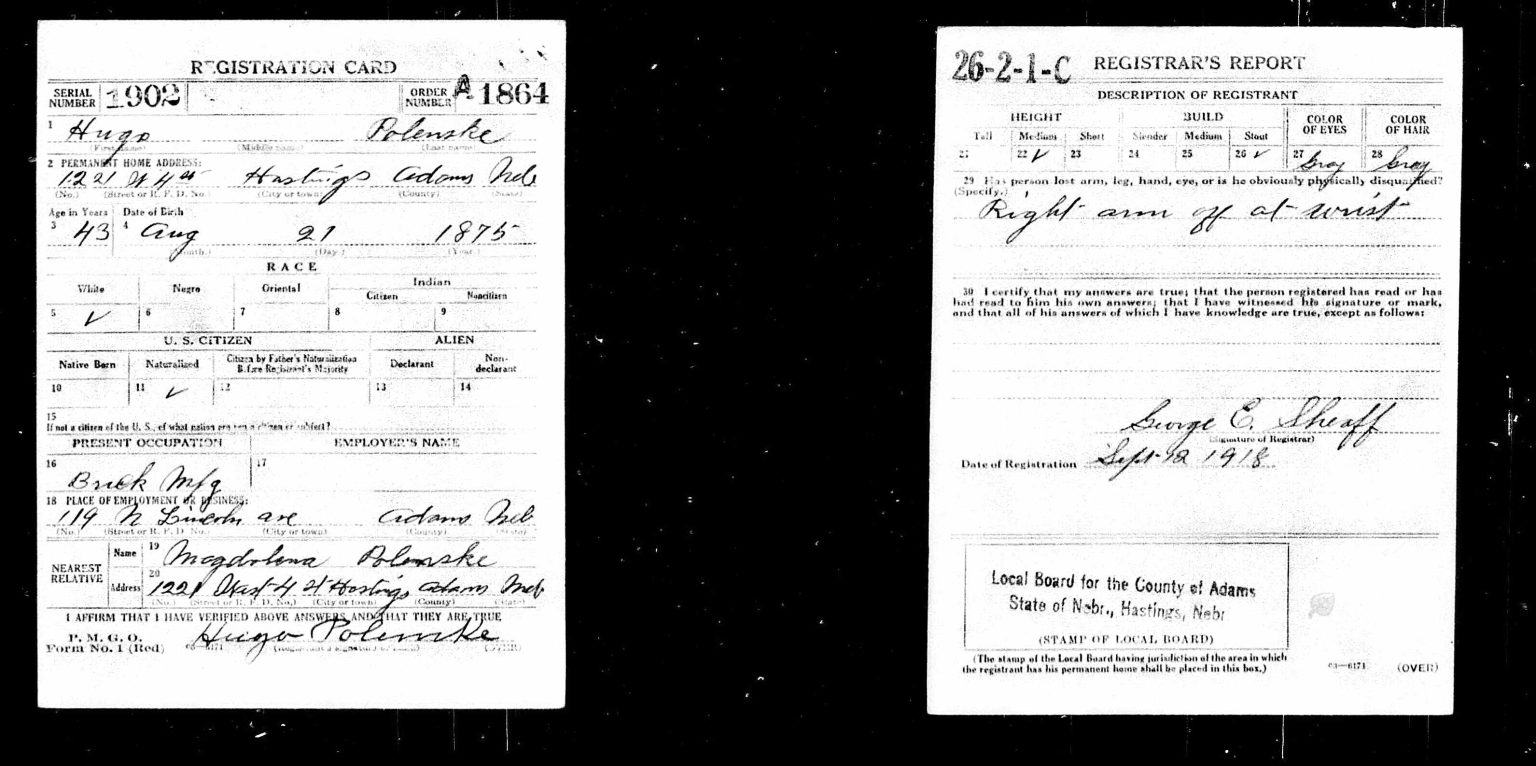 REGISTRATION CARD
SERIAL NUMBER 1902 ORDER NUMBER A 1864
1 Hugo Polenske
(First name) (Middle name) (Last name)
2 PERMANENT HOME ADDRESS:
1221 W 4th Hastings Adams Neb
(No.) (Street or R. F. D. No.) (City or town) (County) (State)
Age in Years Date of Birth
3 43 4 Aug 21 1875
(Month.) (Day.) (Year.)
RACE
White Negro Oriental Indian
Citizen Noncitizen
5 ✓ 6 7 8 9
U. S. CITIZEN ALIEN
Native Born Naturalized Citizen by Father's Naturalization Before Registrant's Majority Declarant Non-declarant
10 11 ✓ 12 13 14
15
If not a citizen of the U. S., of what nation are you a citizen or subject?
PRESENT OCCUPATION EMPLOYER'S NAME
16 Brick Mfg 17
18 PLACE OF EMPLOYMENT OR BUSINESS:
119 N Lincoln ave Adams Neb
(No.) (Street or R. F. D. No.) (City or town) (County) (State)
NEAREST RELATIVE Name 19 Magdolena Polenske
Address 20 1221 West 4 st Hastings Adams Neb
(No.) (Street or R. F. D. No.) (City or town) (County) (State)
I AFFIRM THAT I HAVE VERIFIED ABOVE ANSWERS AND THAT THEY ARE TRUE
P. M. G. O.
Form No. 1 (Red) 03—6171 Hugo Polenske (OVER)
26-2-1-C REGISTRAR'S REPORT
DESCRIPTION OF REGISTRANT
HEIGHT BUILD COLOR OF EYES COLOR OF HAIR
Tall Medium Short Slender Medium Stout
21 22 ✓ 23 24 25 26 ✓ 27 Gray 28 Gray
29 Has person lost arm, leg, hand, eye, or is he obviously physically disqualified?
(Specify.)
Right arm off at wrist
30 I certify that my answers are true; that the person registered has read or has
had read to him his own answers; that I have witnessed his signature or mark,
and that all of his answers of which I have knowledge are true, except as follows:
George E. Sheaff
(Signature of Registrar)
Date of Registration Sept 12 1918
Local Board for the County of Adams
State of Nebr., Hastings, Nebr
(STAMP OF LOCAL BOARD)
(The stamp of the Local Board having jurisdiction of the area in which
the registrant has his permanent home shall be placed in this box.)
03—6171 (OVER)